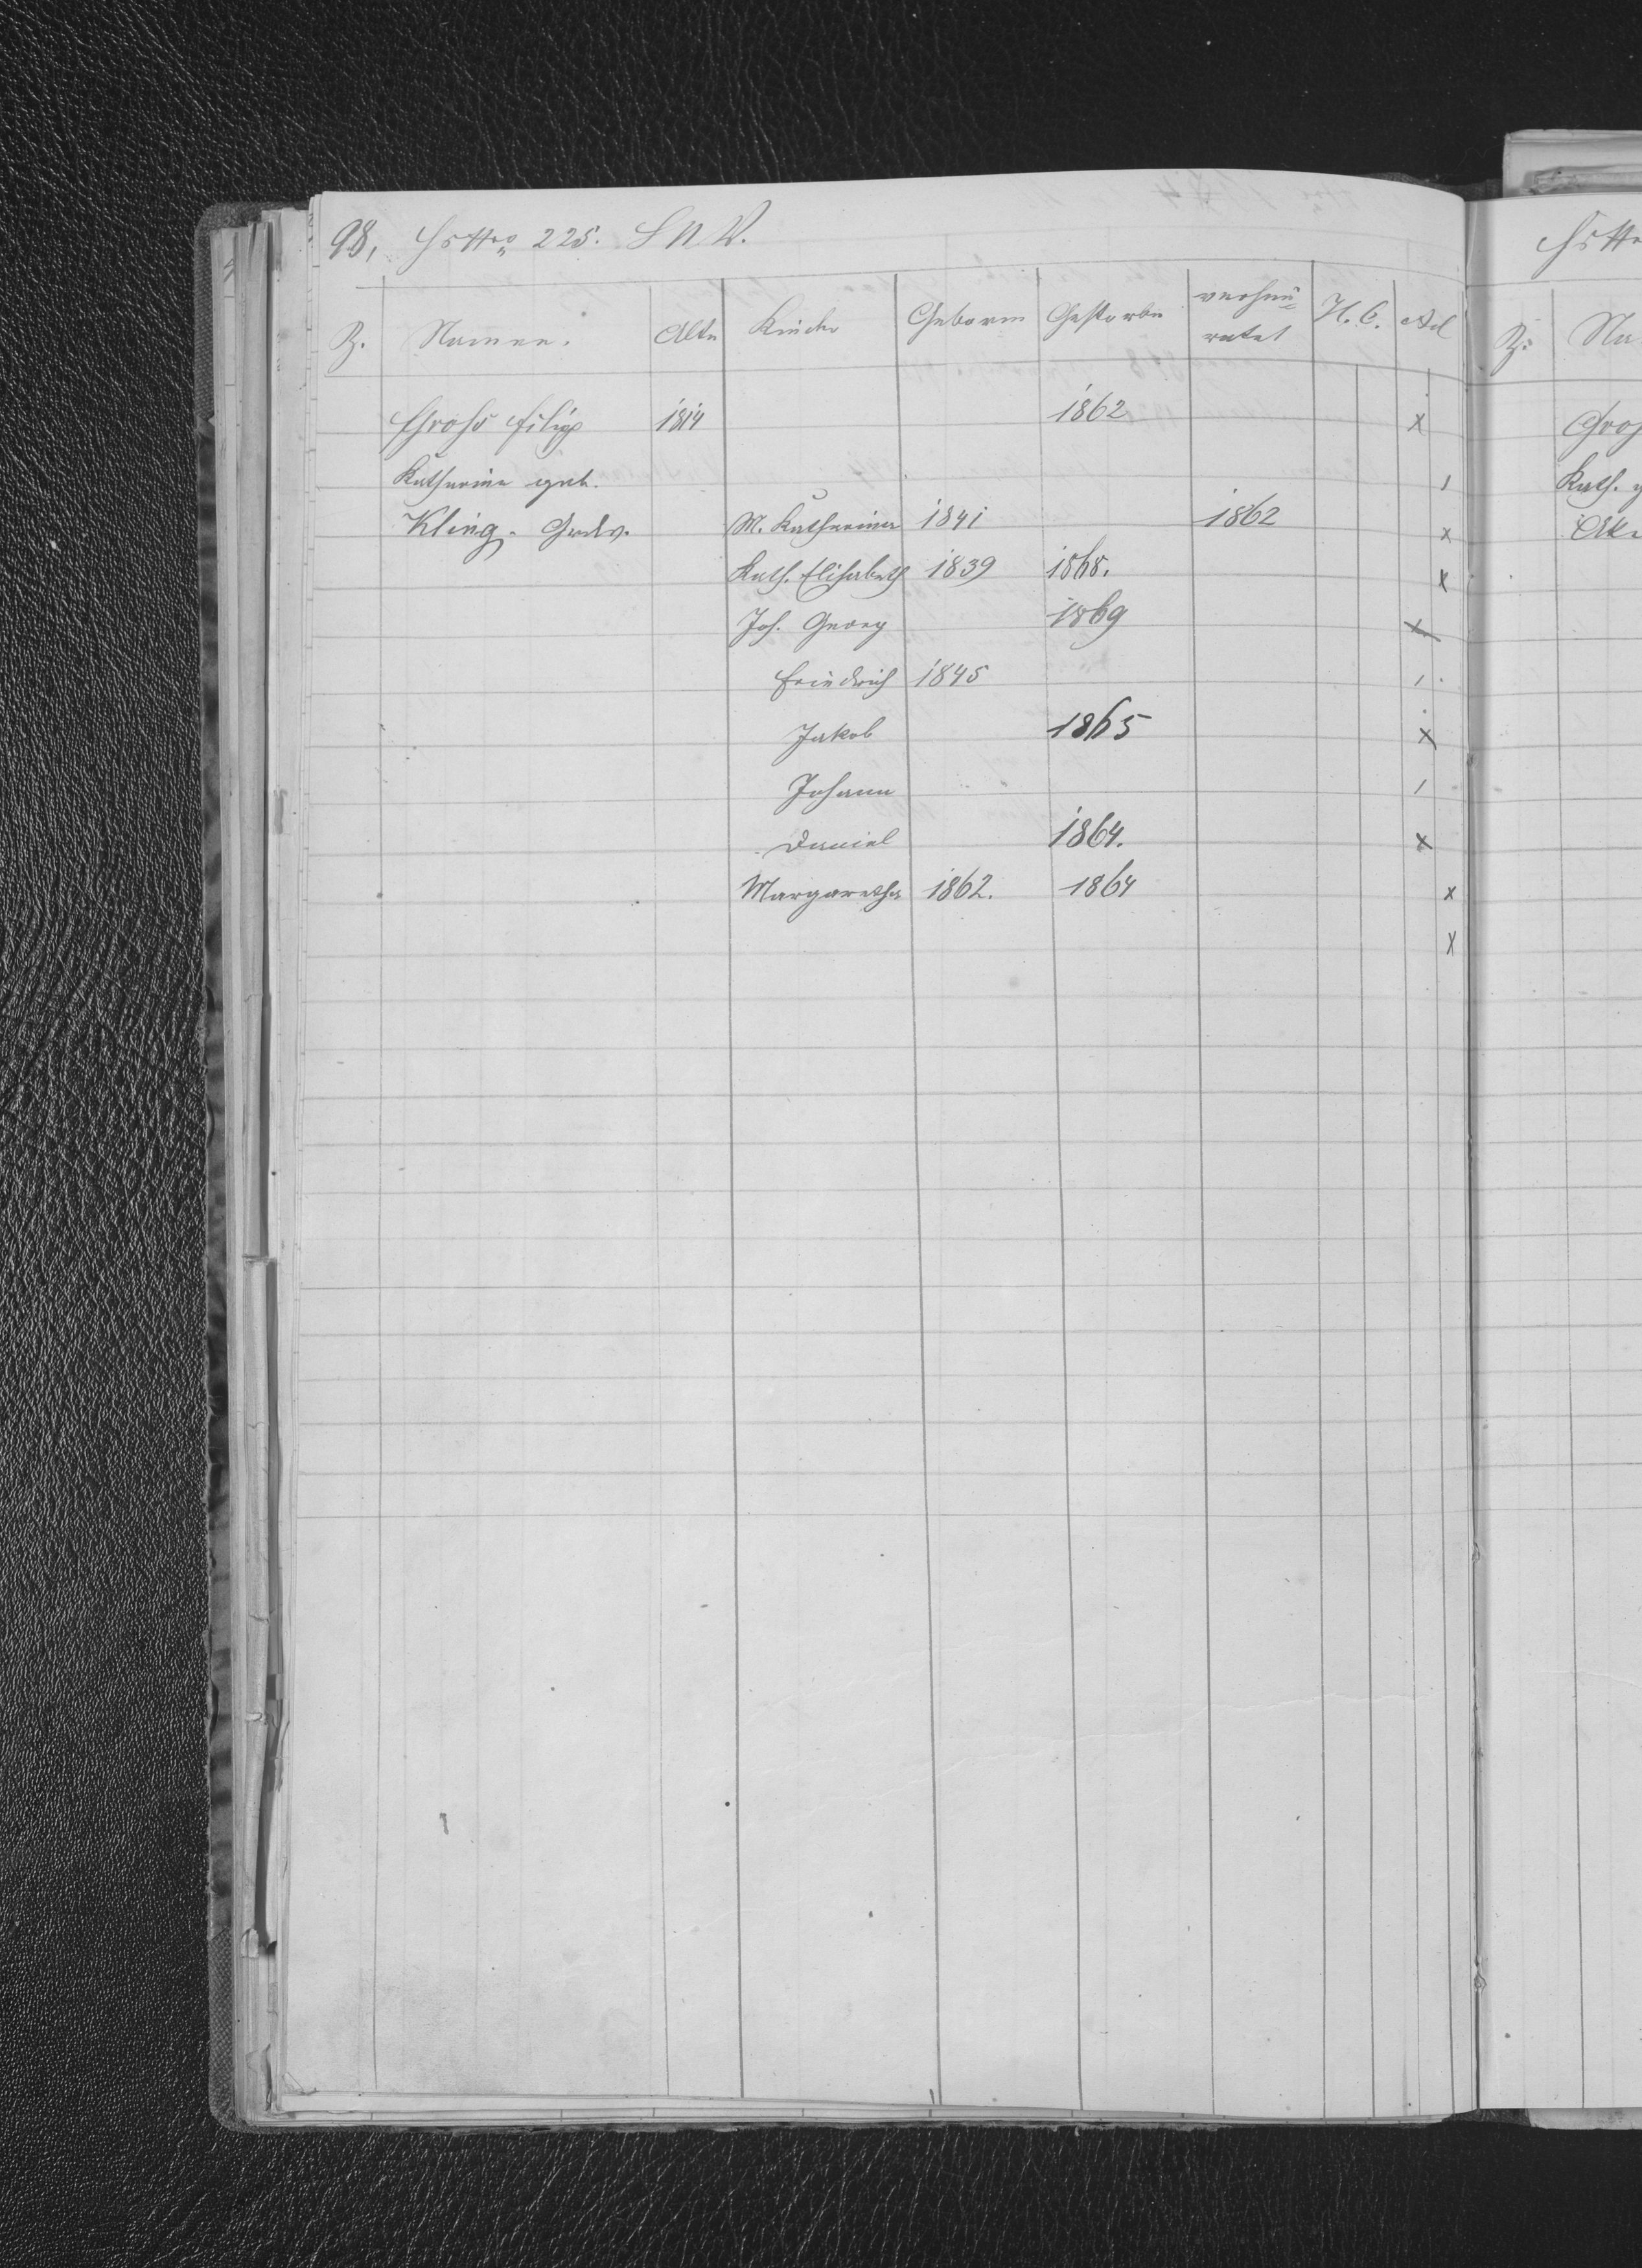 98, Hs Nro 225. S N. W.
Z. Namen. Alte Kinder Geboren Gestorben verheü= H. C. Ad
ratet
Grohs Filip 1814 1862 x
Katharina geb. 1
Kling. M. Katharina 1841 1862 x
Kath. Elisabeth 1839 1868. x
Joh. Georg 1869 x
Friedrich 1845 1
Jakob 1865 x
Johann 1
Daniel 1864. x
Margaretha 1862. 1864 x
x
Hs Nr
Z. Na
Groh
Kath. g